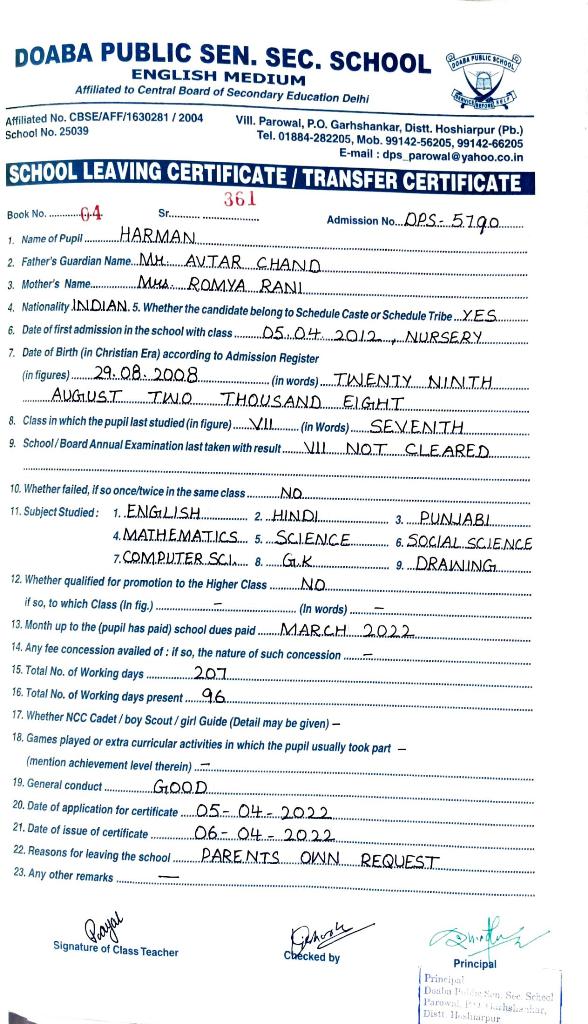 DOABA PUBLIC SEN. SEC. SCHOOL
ENGLISH MEDIUM
Affiliated to Central Board of Secondary Education Delhi
DOABA PUBLIC SCHOOL
Affiliated No. CBSE/AFF/1630281 / 2004
School No. 25039
Vill. Parowal, P.O. Garhshankar, Distt. Hoshiarpur (Pb.)
Tel. 01884-282205, Mob. 99142-56205, 99142-66205
E-mail : dps_parowal@yahoo.co.in
SCHOOL LEAVING CERTIFICATE / TRANSFER CERTIFICATE
Book No. 04 Sr. 361 Admission No. DPS-5790
1. Name of Pupil HARMAN
2. Father's Guardian Name MR. AVTAR CHAND
3. Mother's Name MRS. ROMYA RANI
4. Nationality INDIAN 5. Whether the candidate belong to Schedule Caste or Schedule Tribe YES
6. Date of first admission in the school with class 05.04.2012, NURSERY
7. Date of Birth (in Christian Era) according to Admission Register
(in figures) 29.08.2008 (in words) TWENTY NINTH
AUGUST TWO THOUSAND EIGHT
8. Class in which the pupil last studied (in figure) VII (in Words) SEVENTH
9. School / Board Annual Examination last taken with result VII NOT CLEARED
10. Whether failed, if so once/twice in the same class NO
11. Subject Studied : 1. ENGLISH 2. HINDI 3. PUNJABI
4. MATHEMATICS 5. SCIENCE 6. SOCIAL SCIENCE
7. COMPUTER SCI. 8. G.K 9. DRAWING
12. Whether qualified for promotion to the Higher Class NO
if so, to which Class (In fig.) – (In words) –
13. Month up to the (pupil has paid) school dues paid MARCH 2022
14. Any fee concession availed of : if so, the nature of such concession –
15. Total No. of Working days 207
16. Total No. of Working days present 96
17. Whether NCC Cadet / boy Scout / girl Guide (Detail may be given) –
18. Games played or extra curricular activities in which the pupil usually took part –
(mention achievement level therein) –
19. General conduct GOOD
20. Date of application for certificate 05-04-2022
21. Date of issue of certificate 06-04-2022
22. Reasons for leaving the school PARENTS OWN REQUEST
23. Any other remarks —
Payal
Signature of Class Teacher
Checked by
Principal
Principal
Doaba Public Sen. Sec. School
Parowal, P.O. Garhshankar,
Distt. Hoshiarpur